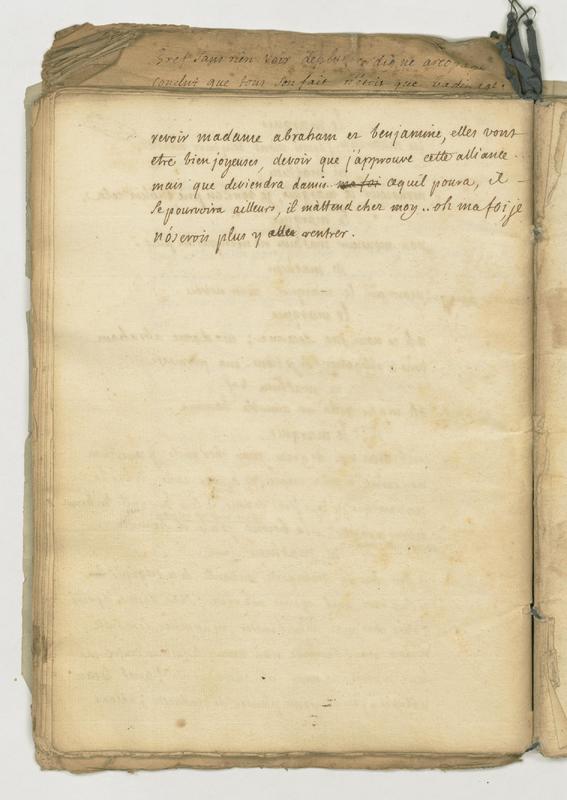 Et sans rien voir
conclut que tous son fait n'étois que badinage.
revoir madame abraham et benjamine, elles vont
etre bien joyeuses, devoir que j'approuve cette alliance
mais que deviendra damis ma foi cequil poura, il
se pourvoira ailleurs, il m'attend chez moy.. oh ma foi je
n'óserois plus y aller rentrer.